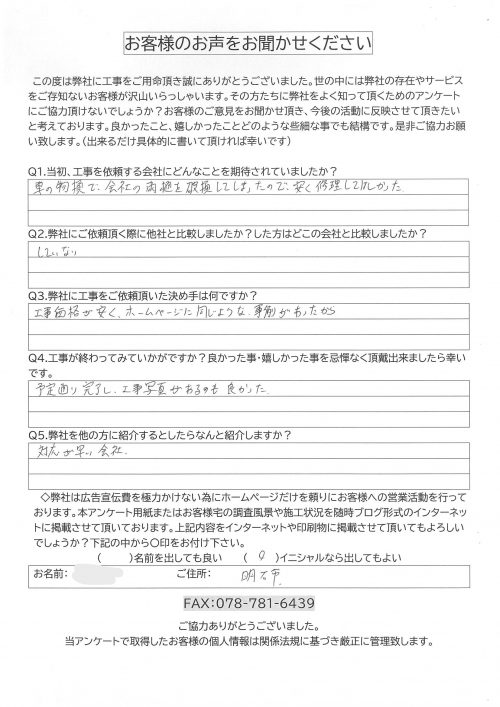 お客様のお声をお聞かせください
この度は弊社に工事をご用命頂き誠にありがとうございました。世の中には弊社の存在やサービス
をご存知ないお客様が沢山いらっしゃいます。その方たちに弊社をよく知って頂くためのアンケート
にご協力頂けないでしょうか？お客様のご意見をお聞かせ頂き、今後の活動に反映させて頂きたい
と考えております。良かったこと、嬉しかったことどのような些細な事でも結構です。是非ご協力お願
い致します。(出来るだけ具体的に書いて頂ければ幸いです)
Q1.当初、工事を依頼する会社にどんなことを期待されていましたか？
車の物損で、会社の 破損してしまったので、安く修理してほしかった
Q2.弊社にご依頼頂く際に他社と比較しましたか？した方はどこの会社と比較しましたか？
していない
Q3.弊社に工事をご依頼頂いた決め手は何ですか？
工事価格が安く、ホームページに同じような、事例があったから
Q4.工事が終わってみていかがですか？良かった事・嬉しかった事を忌憚なく頂戴出来ましたら幸い
です。
予定通り完了し、工事写真があるのも良かった。
Q5.弊社を他の方に紹介するとしたらなんと紹介しますか？
対応が早い会社.
◇弊社は広告宣伝費を極力かけない為にホームページだけを頼りにお客様への営業活動を行って
おります。本アンケート用紙またはお客様宅の調査風景や施工状況を随時ブログ形式のインターネッ
トに掲載させて頂いております。上記内容をインターネットや印刷物に掲載させて頂いてもよろしい
でしょうか？下記の中から〇印をお付け下さい。
(　　)名前を出しても良い　(　○　)イニシャルなら出してもよい
お名前：　ご住所：　明石市
FAX:078-781-6439
ご協力ありがとうございました。
当アンケートで取得したお客様の個人情報は関係法規に基づき厳正に管理致します。